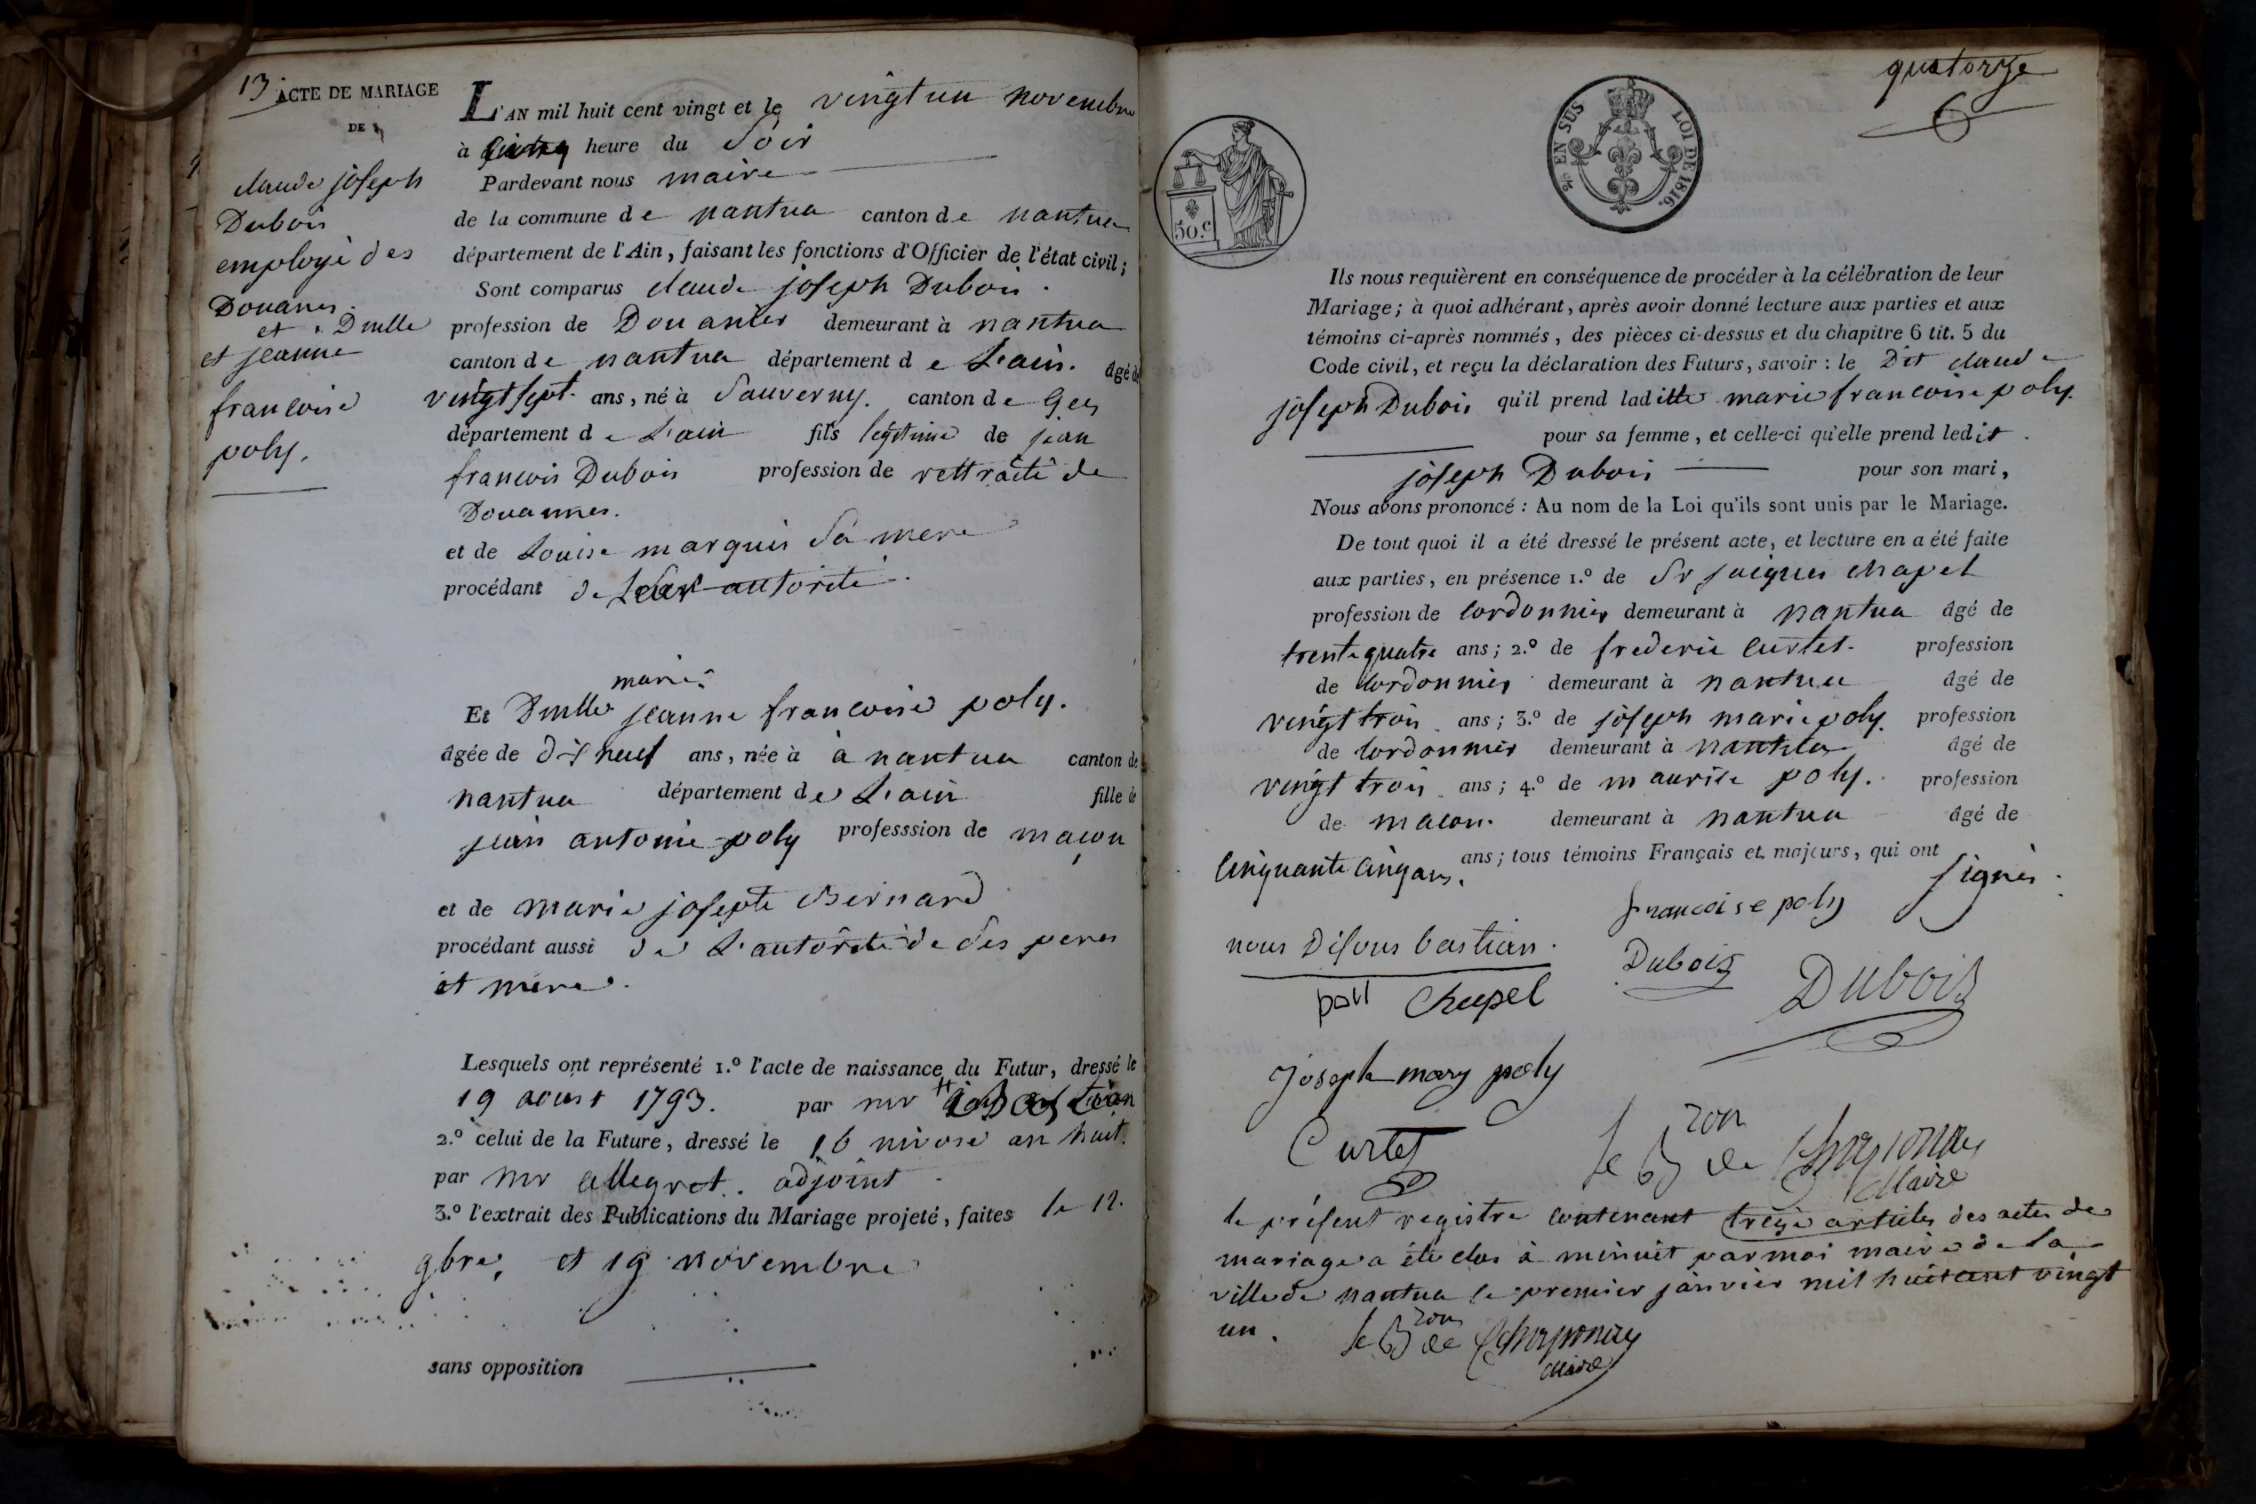 13 ACTE DE MARIAGE
DE
claude joseph
Dubois
employé des
Douanes.
et Dmlle
et jeanne
francoise
poly.
L'AN mil huit cent vingt et le vingt un novembre
à cinq heure du Soir
Pardevant nous maire
de la commune de nantua canton de nantua
département de l'Ain, faisant les fonctions d'Officier de l'état civil;
Sont comparus claude joseph Dubois.
profession de Douanier demeurant à nantua
canton de nantua département de L'ain. âgé de
vingt sept ans, né à Sauverny. canton de Gex
département de L'ain fils legitime de jean
francois Dubois profession de rettraité de
Douannes.
et de Louise marquis Sa mere
procédant de autorité.
marie
Et Dmlle jeanne francoise poly.
âgée de dix neuf ans, née à à nantua canton de
nantua département de L'ain fille de
jean antoine poly professsion de maçon
et de marie josepte Bernard
procédant aussi de L'autorité de ses peres
et mere.
Lesquels ont représenté 1.º l'acte de naissance du Futur, dressé le
19 aoust 1793. par mr
2.º celui de la Future, dressé le 16 nivose an huit.
par mr allegret. adjoint
3.º l'extrait des Publications du Mariage projeté, faites le 12.
9bre, et 19 novembre
sans opposition
quatorze
% EN SUS LOI DE 1816.
50.c
Ils nous requièrent en conséquence de procéder à la célébration de leur
Mariage; à quoi adhérant, après avoir donné lecture aux parties et aux
témoins ci-après nommés, des pièces ci-dessus et du chapitre 6 tit. 5 du
Code civil, et reçu la déclaration des Futurs, savoir : le Dit claude
joseph Dubois qu'il prend laditte marie francoise poly.
pour sa femme, et celle-ci qu'elle prend ledit
joseph Dubois pour son mari,
Nous avons prononcé : Au nom de la Loi qu'ils sont unis par le Mariage.
De tout quoi il a été dressé le présent acte, et lecture en a été faite
aux parties, en présence 1.º de Sr jaques chapel
profession de cordonnier demeurant à nantua âgé de
trente quatre ans; 2.º de frederic curtet. profession
de cordonnier demeurant à nantua âgé de
vingt trois ans; 3.º de joseph marie poly. profession
de cordonnier demeurant à nantua âgé de
vingt trois ans; 4.º de maurise poly. profession
de macon. demeurant à nantua âgé de
cinquante cinq ans. ans; tous témoins Français et majeurs, qui ont
signés.
francoise poly
nous Disons bastian.
Dubois
Dubois
poll Chapel
Joseph mary poly
Curtet
le Bon de
Maire
le présent registre contenant treize articles des actes de
mariage a été clos à minuit par moi maire de la
ville de nantua le premier janvier mil huit cent vingt
un.
le Bon de
Maire